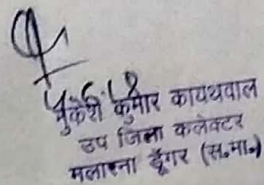 4.6.18
मुकेश कुमार कायथवाल
उप जिला कलेक्टर
मलारना डूँगर (स०मा०)